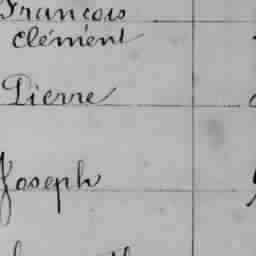 François
Clément
Pierre
Joseph